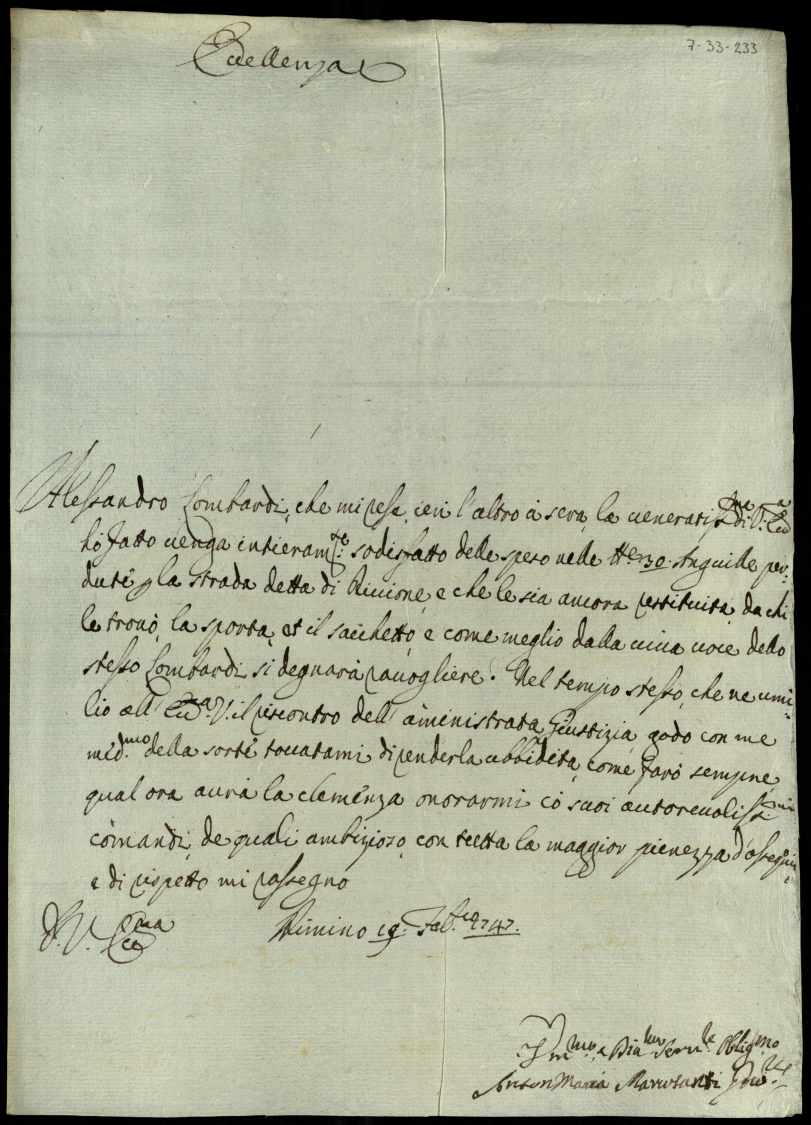 7-33-233
Eccellenza
Alessandro Lombardi, che mi rese ieri l'altro à sera la veneratiss.ma di V: Ecc.a
hò fatto venga intieram.te sodisfatto delle spese nelle tt.e 30. Anguille per-
dute p la strada detta di Riccione, e che le sia ancora restituita da chi
le trovò la sporta, et il sacchetto, e come meglio dalla viva voce dello
stesso Lombardi si degnarà raccogliere. Nel tempo stesso, che ne umi-
lio all' Ecc.a V. il riscontro dell' aministrata Giustizia godo con me
med.mo della sorte toccatami di renderla ubbidita, come farò sempre,
qual ora avrà la clemenza onorarmi có suoi autorevoliss.mi
comandi, de quali ambizioso con tutta la maggior pienezza d'ossequio,
e di rispetto mi rassegno
D. V. Ecc.ma
Rimino 19. Feb.ro 1747.
Um.mo e Div.mo Serv.re Oblig.mo
Anton Maria